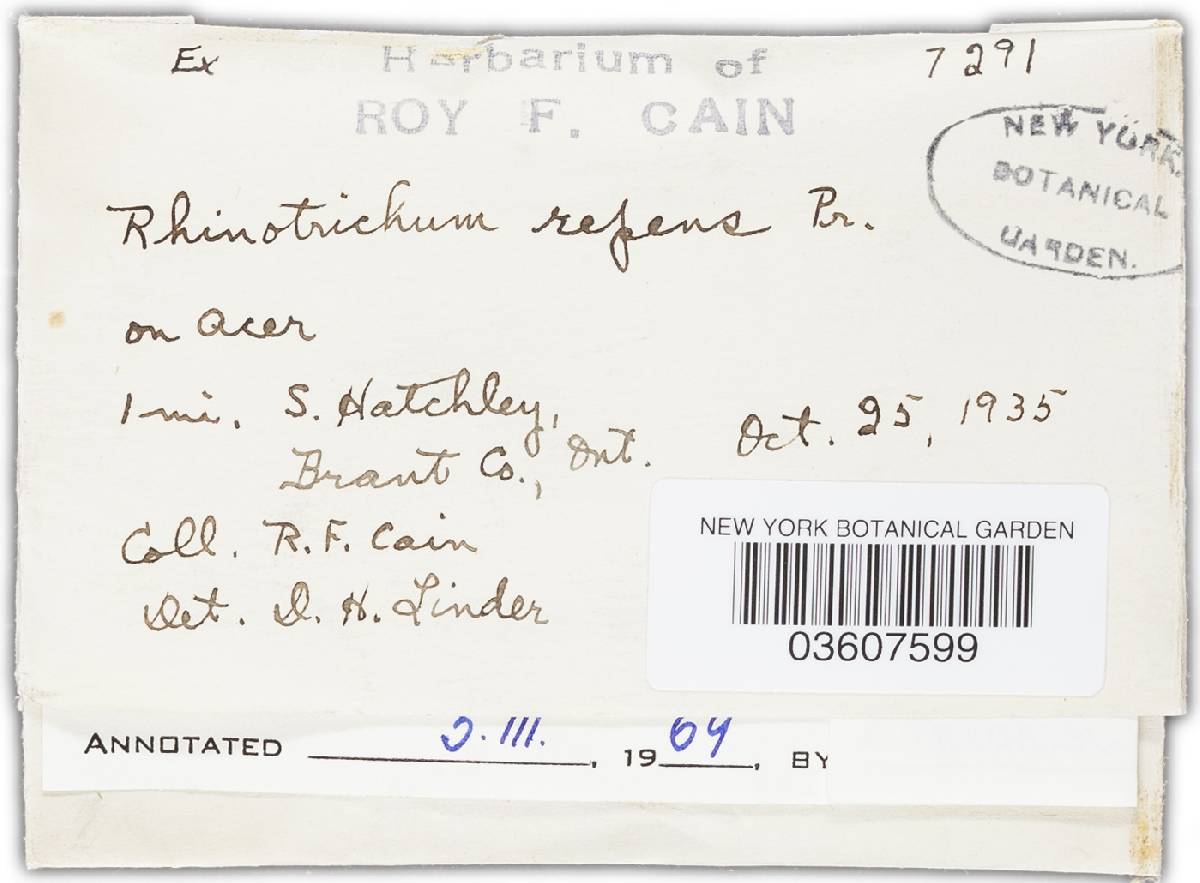 Ex Herbarium of 7291
ROY F. CAIN
NEW YORK
BOTANICAL
GARDEN.
Rhinotrichum repens Pr.
on Acer
1 mi. S. Hatchley,
Brant Co., Ont. Oct. 25, 1935
Coll. R. F. Cain
Det. D. H. Linder
NEW YORK BOTANICAL GARDEN
03607599
ANNOTATED .III. , 1964, BY